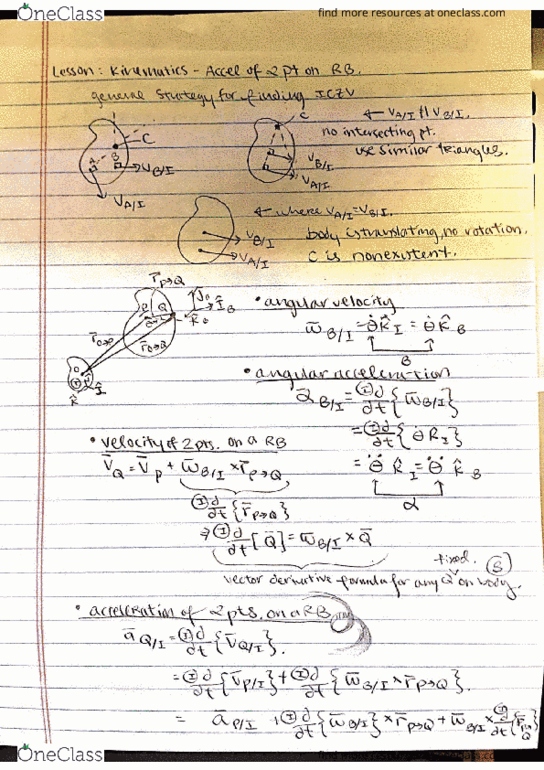 OneClass
find more resources at oneclass.com
Lesson: Kinematics - Accel of 2 pt on RB.
general strategy for finding ICZV
C
C
← V_A/I // V_B/I.
no intersecting pt.
use similar triangles.
A
B
V_B/I
V_A/I
V_B/I
V_A/I
← where V_A/I = V_B/I.
body is translating, no rotation.
C is nonexistent.
V_B/I
V_A/I
r̄_P→Q
P
Q
r̄_O→P
r̄_O→Q
• angular velocity
ω̄_B/I = θ̇ K̂_I = θ̇ K̂_B
• angular acceleration
ᾱ_B/I = Ⓘd/dt {ω̄_B/I}
= Ⓘd/dt {θ̇ K̂_I}
= θ̈ K̂_I = θ̈ K̂_B
α
• velocity of 2 pts. on a RB
V̄_Q = V̄_P + ω̄_B/I × r̄_P→Q
Ⓘd/dt {r̄_P→Q}
⇒ Ⓘd/dt [Q̄] = ω̄_B/I × Q̄
fixed.
vector derivative formula for any Q̄ on body.
• acceleration of 2 pts. on a RB
ā_Q/I = Ⓘd/dt {V̄_Q/I}.
= Ⓘd/dt {V̄_P/I} + Ⓘd/dt {ω̄_B/I × r̄_P→Q}.
= ā_P/I + Ⓘd/dt {ω̄_B/I} × r̄_P→Q + ω̄_B/I × Ⓘd/dt {r̄_P→Q}
OneClass
find more resources at oneclass.com